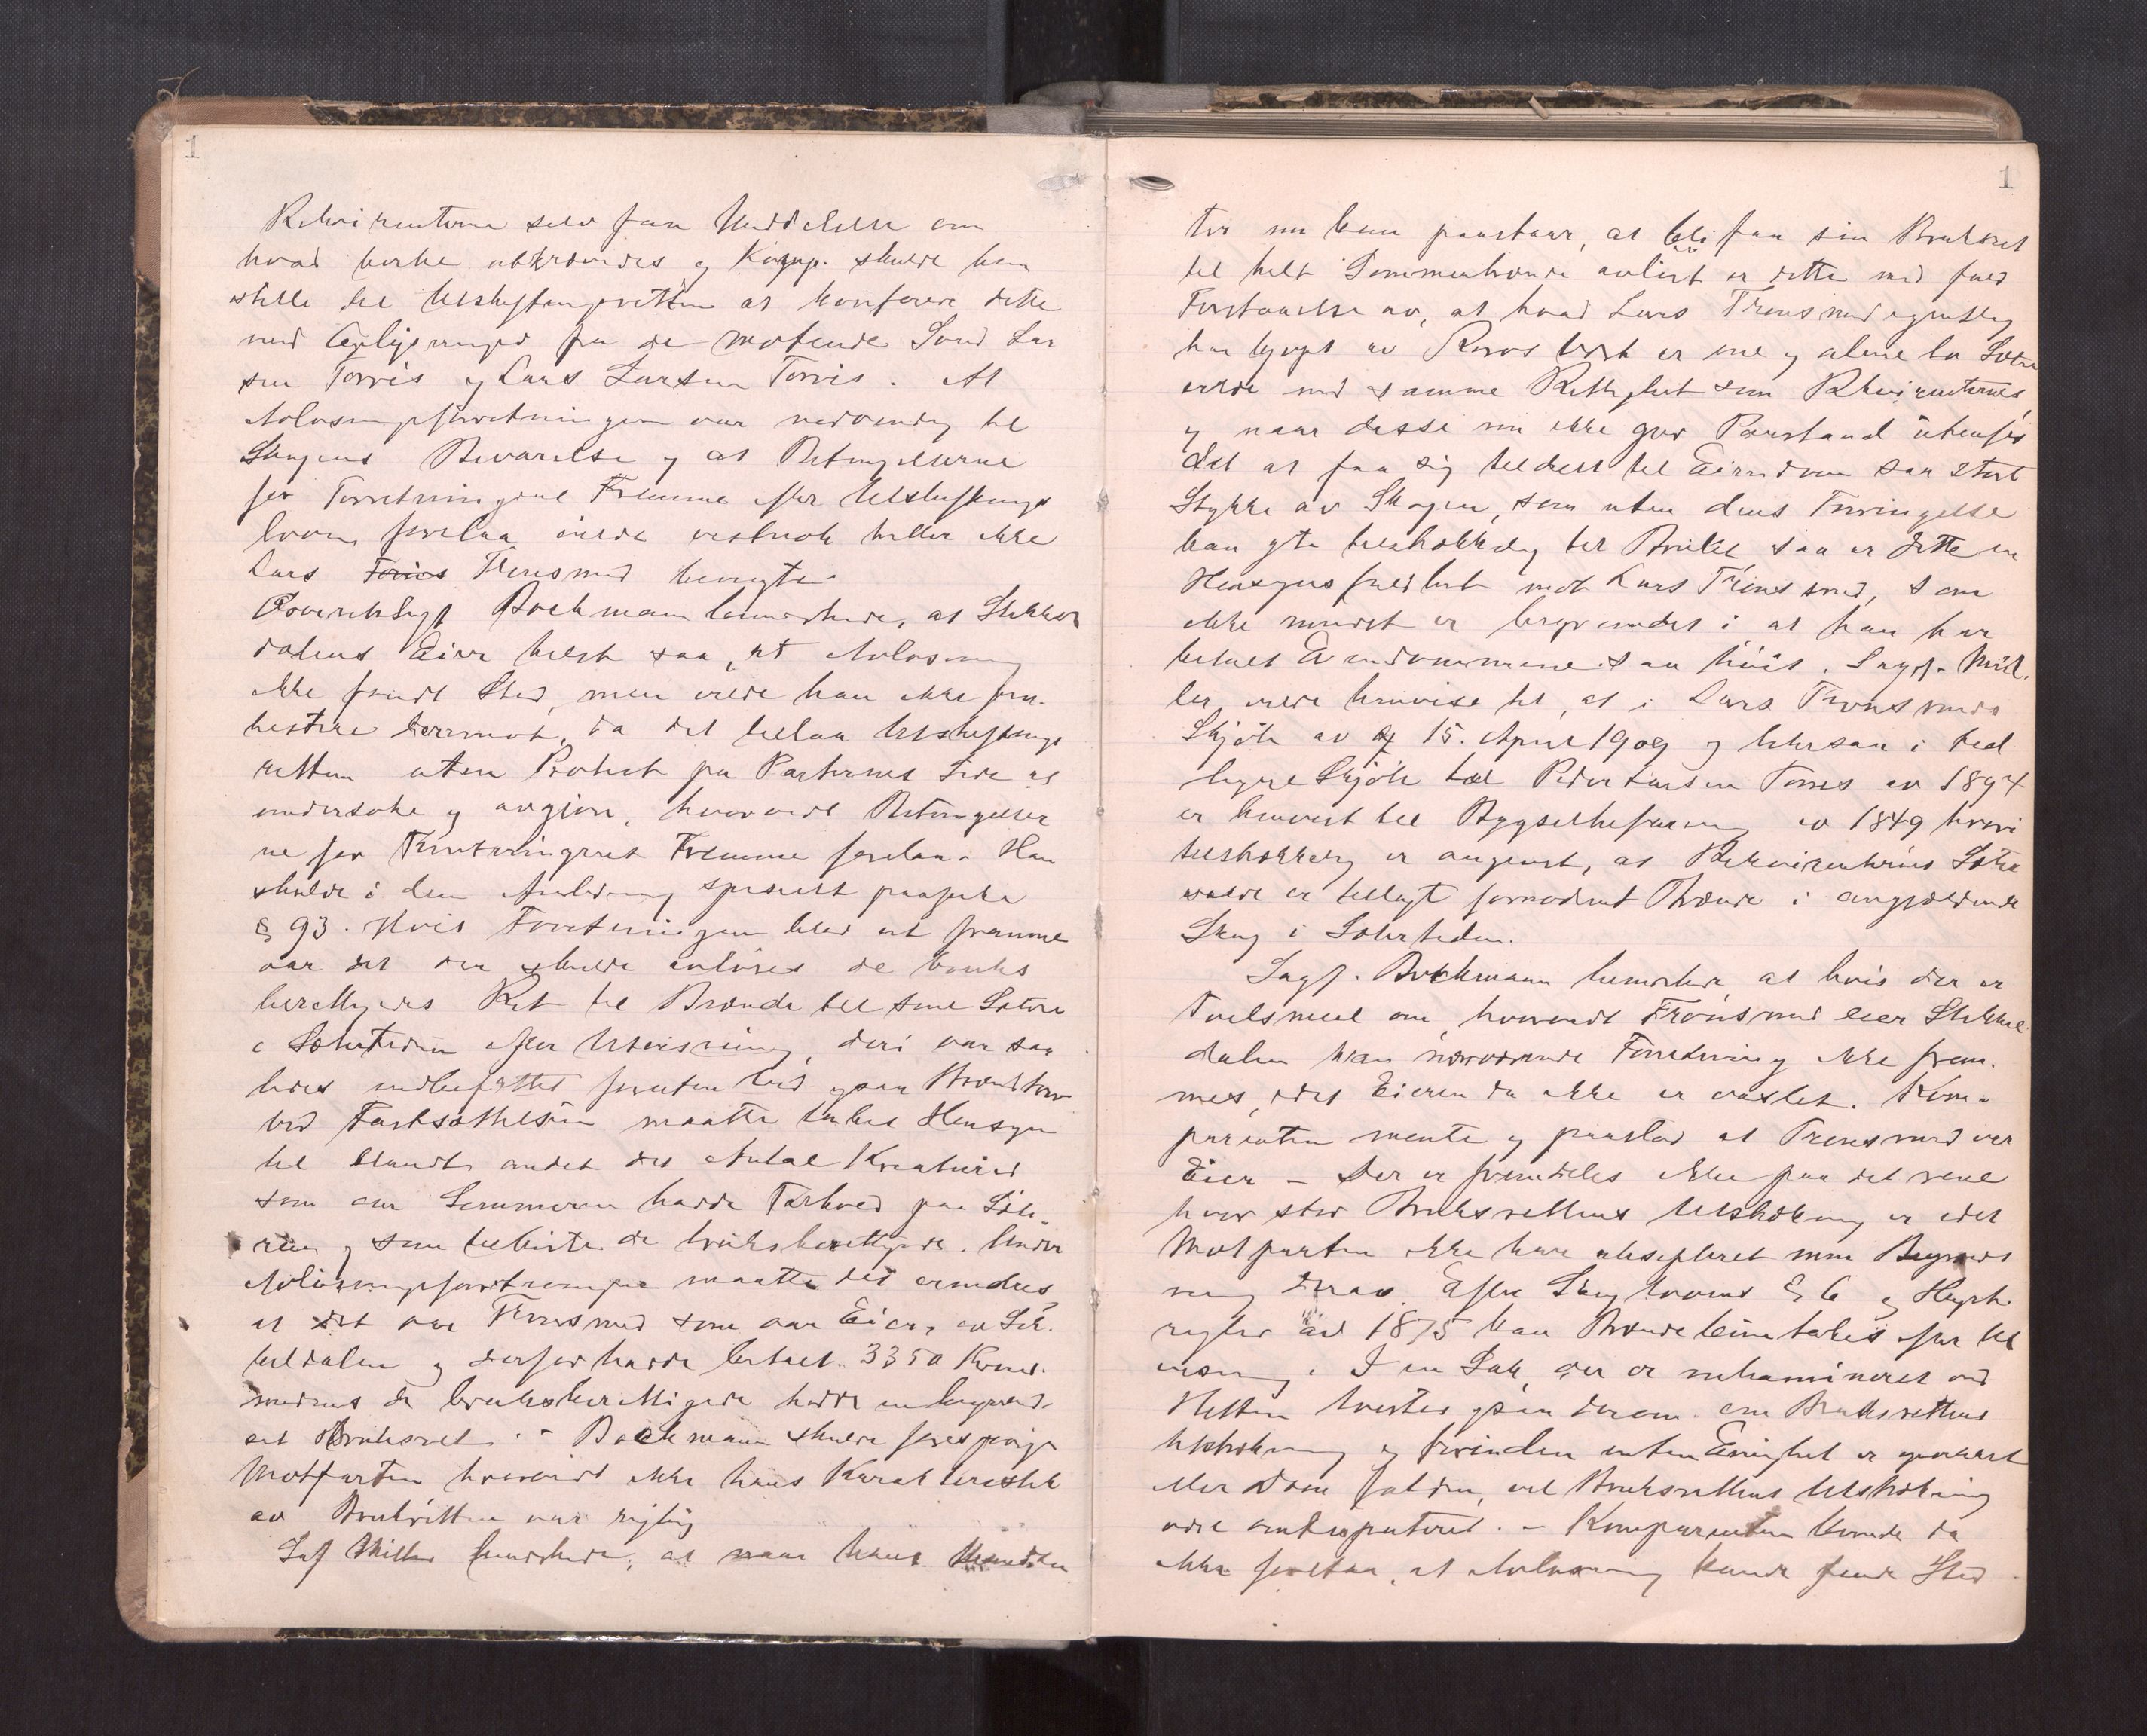 1
Rekvirenterne selv faa Meddelelse om
hvad  og Komp. skulde kun
stille til Utskiftningsretten at konferere dette
med  fra de møtende  Lar
sen Torres og Lars Larsen Torres. At
Avløsningsforretningen var nødvendig til
Skogens Bevarelse og at Betingelserne
for Forretningens Fremme efter Utskiftnings
loven forelaa vilde vistnok heller ikke
Lars Torres Trønsmed benegte.
Overretssagf Bockmann bemerkede, at Stikkel
dalens Eier helst saa, at Avløsning
ikke fandt Sted, men vilde han ikke pro-
testere derimot, da det tillaa Utskiftnings
retten uten Protest fra Parternes Side at
undersøke og avgjøre, hvorvidt Betingelser
ne for Forretningens Fremme forelaa. Han
skulde i den Anledning specielt paapeke
§ 93. Hvis Forretningen blev at fremme
var det der skulde avløses de bruks
berettigedes Ret til Brænde til sine Sætre
i Sætertiden efter Utvisning, deri var saa
ledes indbefattet foruten Ved ogsaa
Ved Fastsættelsen maatte tages Hensyn
til blandt andet det Antal Kreaturer
som om Sommeren hadde Tarhved paa Sæte-
ren og som tilhørte de bruksberettigede. Under
Avløsningsforretningen maatte det erindres
at det var Trønsmed som var Eier av Stik-
keldalen og derfor hadde betalt 3350 Kroner
medens de bruksberettigede hadde en begrænd-
set Bruksret. - Bockmann skulde forespørge
Motparten hvorvidt ikke hans Karakteristik
av Bruksretten var rigtig
Sagf Müller bemerkede, at naar hans
1
ter nu kun paastaar, at bli faa sin Bruksret
til helt Sommerbrænde avløst er dette med fuld
Forstaaelse av, at hvad Lars Trønsmed egentlig
har kjøpt av Røros Verk er ene og alene en Sæter
 med samme Rettighet som Rekvirenternes,
og naar disse nu ikke gjør Paastand utenfor
det at faa sig tildelt til Eiendom saa stort
Stykke av Skogen, som uten dens Forringelse
kan yte tilstrækkelig til Bruket saa er dette en
Hensynsfuldhet mot Lars Trønsmed, som
ikke mindst er begrundet i at han har
betalt Eiendommene saa høit. Sagf. Mül-
ler vilde henvise til, at i Lars Trønsmeds
Skjøte av 15. April 1909 og likesaa i tid
ligere Skjøte til Peder Larsen Torres av 1894
er henvist til Bygselbefaring av 1849 hvori
tilstrækkelig er angivet, at Rekvirenternes Sætre
 er tillagt fornødent Brænde i angjældende
Skog i Sætertiden.
Sagf. Bockmann bemerker, at hvis der er
Tvilsmaal om, hvorvidt Trønsmed eier Stikkel
dalen kan nærværende Forretning ikke frem-
mes, idet Eieren da ikke er varslet. Kom-
parenten mente og paastod at Trønsmed var
Eier - Der er fremdeles ikke paa det rene
hvor stor Bruksrettens Utstrækning er idet
Motparten ikke har aksepteret min Begrænds
ning derav. Efter Skoglovens § 6 og Høiest.
regler av 1875 kan Brænde kun tages efter Ut
visning. I en Sak, der er  ved
Retten tvistes ogsaa derom om Bruksrettens
Utstrækning og forinden enten Enighet er opnaaet
eller Dom falder, vil Bruksrettens Utstrækning
være omdisputeret. - Komparenten kunde da
ikke forstaa, at Avløsning kunde finde Sted